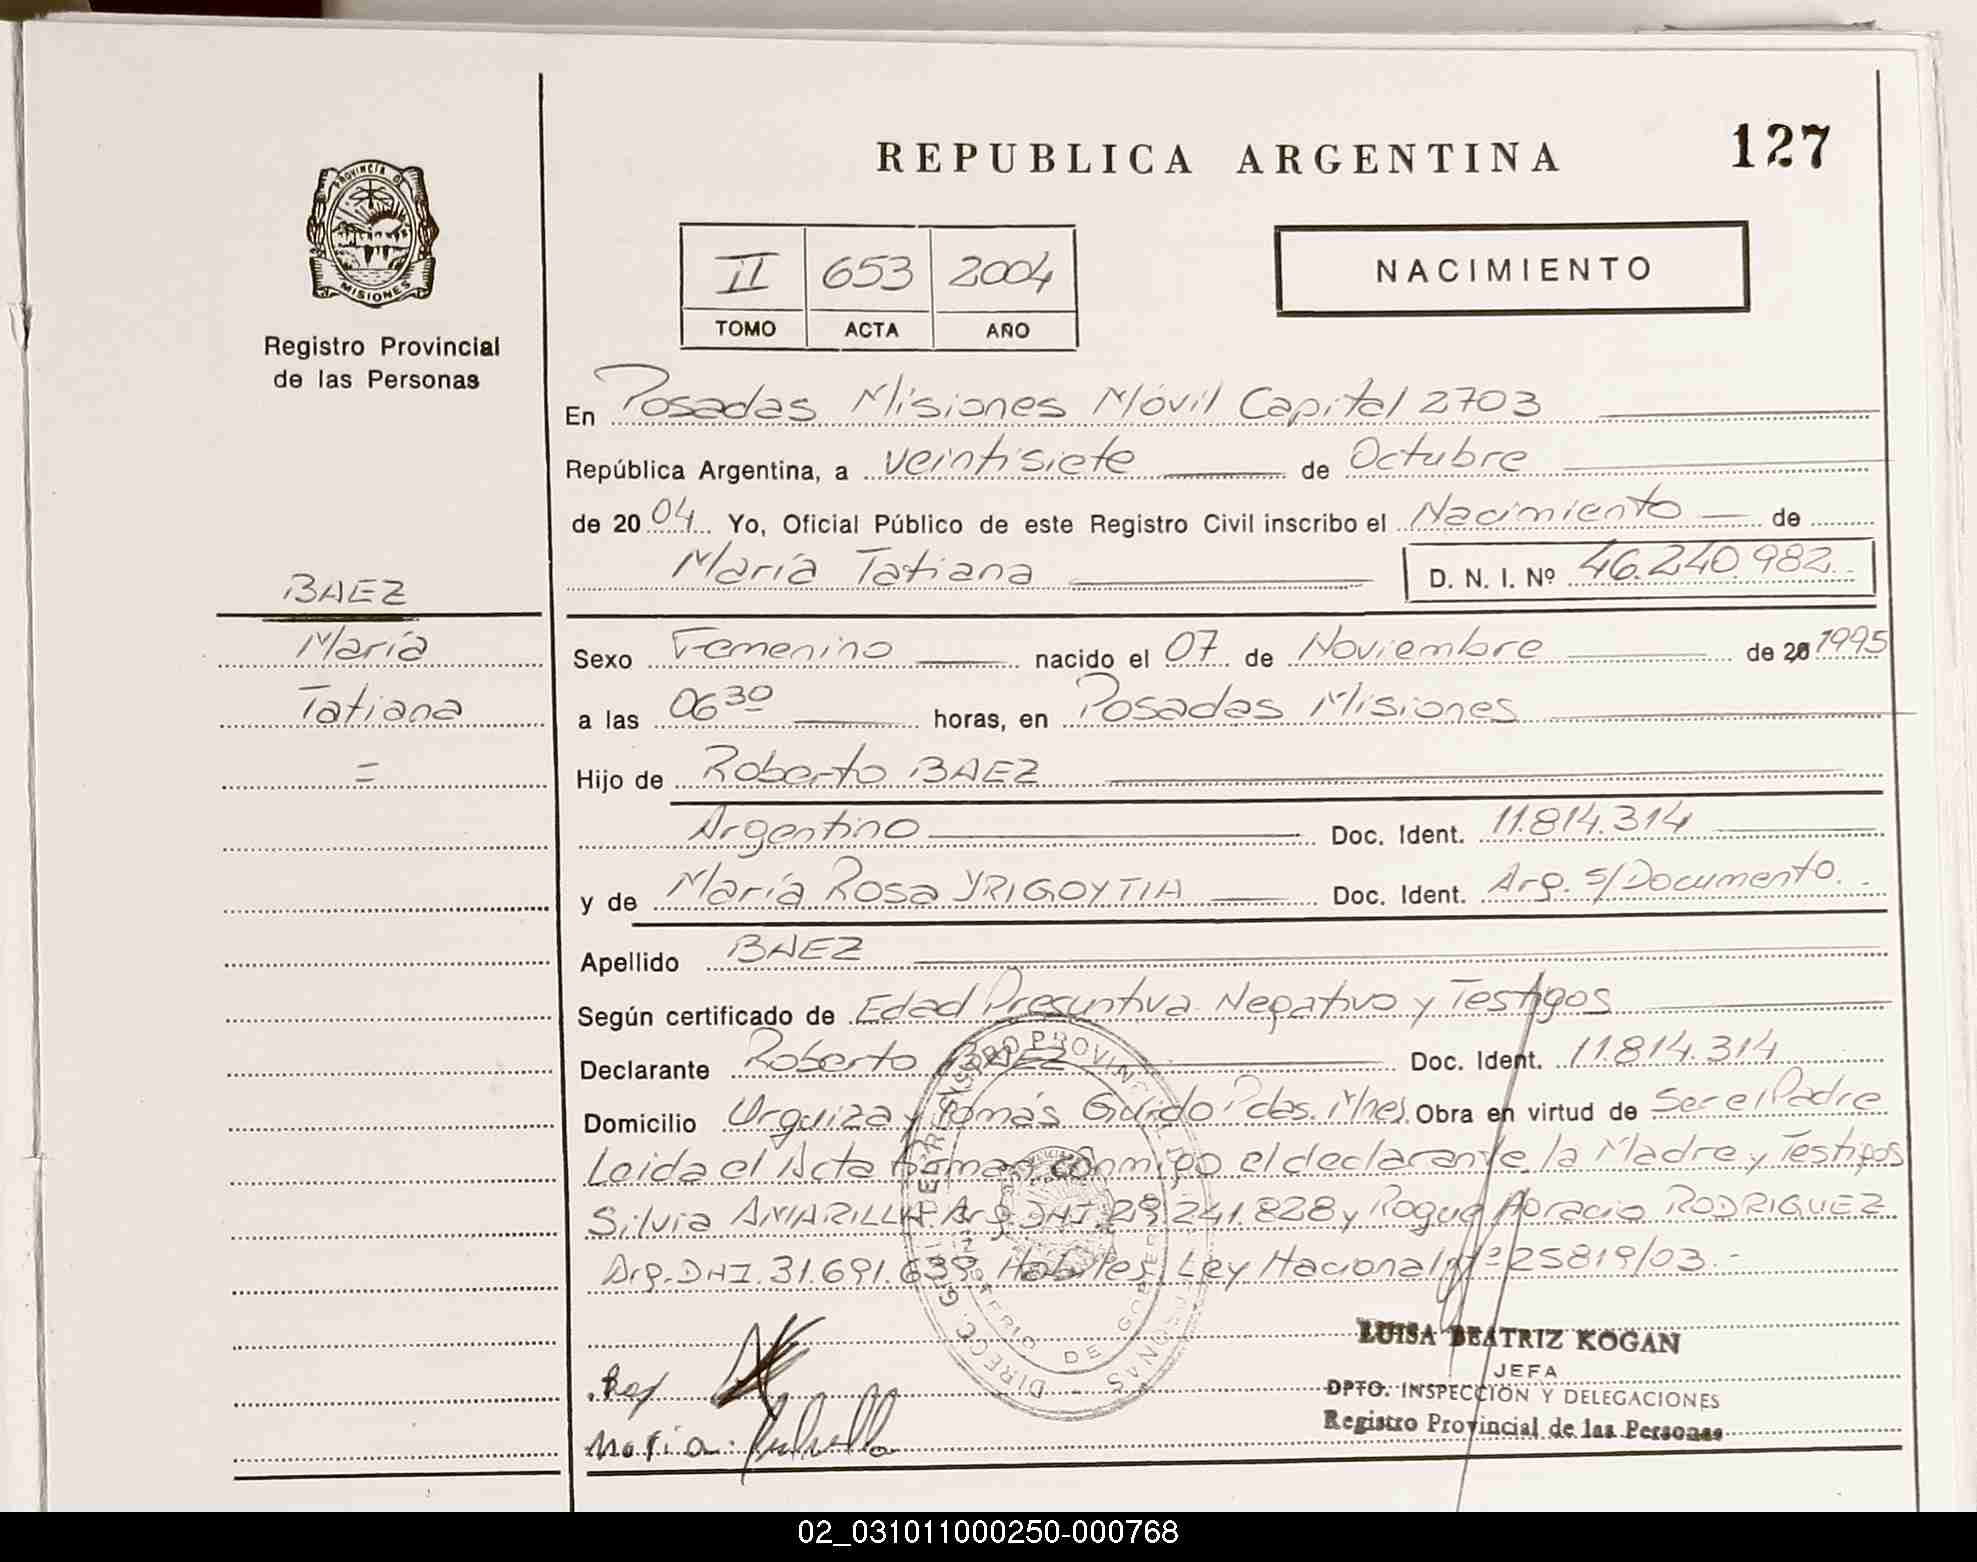 REPUBLICA ARGENTINA
127
PROVINCIA DE
MISIONES
Registro Provincial
de las Personas
II 653 2004
TOMO ACTA AÑO
NACIMIENTO
En Posadas Misiones Móvil Capital 2703
República Argentina, a veintisiete de Octubre
de 2004 Yo, Oficial Público de este Registro Civil inscribo el Nacimiento de
María Tatiana D. N. I. Nº 46.240.982.
BAEZ
María
Tatiana
=
Sexo Femenino nacido el 07 de Noviembre de 20 1995
a las 06 30 horas, en Posadas Misiones
Hijo de Roberto BAEZ
Argentino Doc. Ident. 11.814.314
y de María Rosa YRIGOYTIA Doc. Ident. Arg. S/Documento.
Apellido BAEZ
Según certificado de Edad Presuntiva Negativo y Testigos
Declarante Roberto BAEZ Doc. Ident. 11.814.314
Domicilio Urquiza y Tomás Guido Pdas. Mnes. Obra en virtud de Ser el Padre
Leida el Acta firman conmigo el declarante, la Madre y Testigos
Silvia AMARILLA Arg. DNI. 29.241.828 y Roque Horacio RODRIGUEZ
Arg. DNI. 31.691.639 Habiles, Ley Nacional Nº 25819/03.-
DIRECC. GRAL. DEL REGISTRO PROVINCIAL DE LAS PERSONAS
MINISTERIO DE GOBIERNO
LUISA BEATRIZ KOGAN
JEFA
DPTO. INSPECCION Y DELEGACIONES
Registro Provincial de las Personas
Maria
02_031011000250-000768